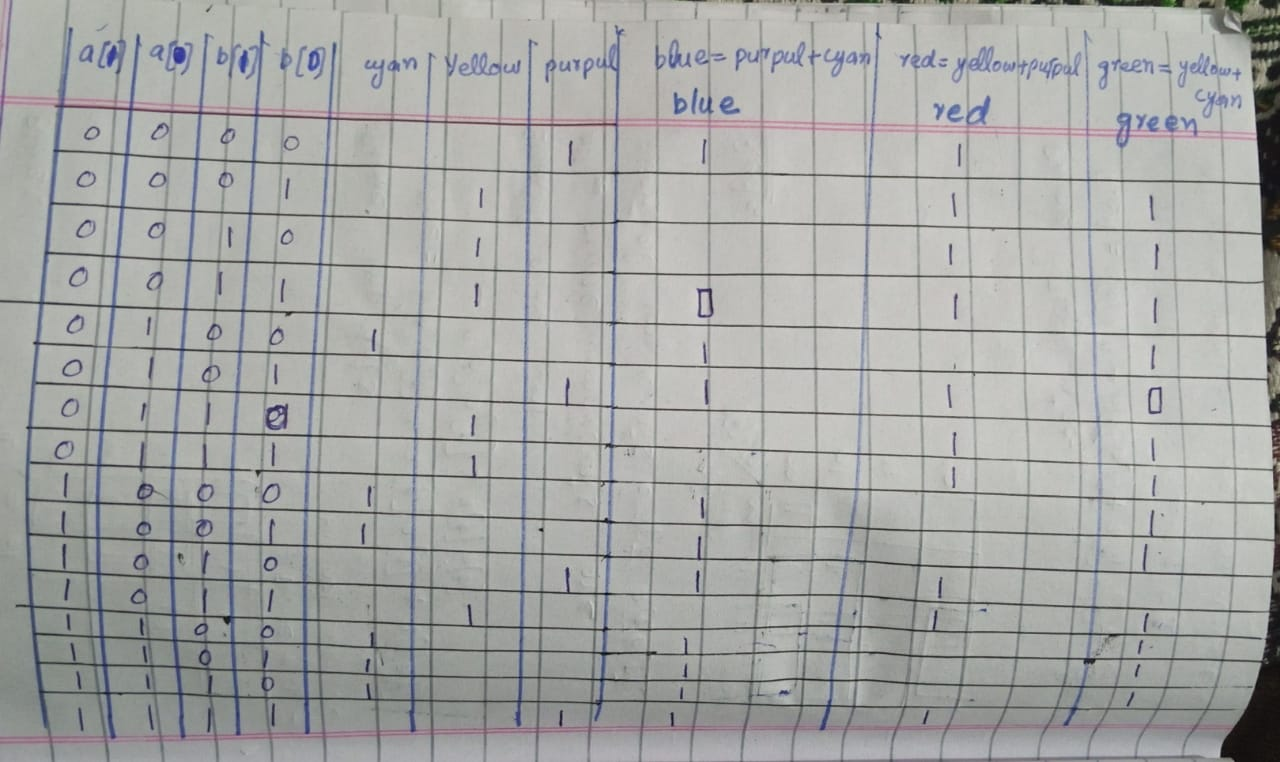 a[1] a[0] b[1] b[0] cyan Yellow purpul blue= purpul+cyan red= yellow+purpul green= yellow+
cyan
blue red green
0 0 0 0 1 1 1
0 0 0 1 1 1 1
0 0 1 0 1 1 1
0 0 1 1 1 0 1 1
0 1 0 0 1 1 1
0 1 0 1 1 1 1 0
0 1 1 0 1 1 1
0 1 1 1 1 1 1
1 0 0 0 1 1 1
1 0 0 1 1 1 1
1 0 1 0 1 1 1
1 0 1 1 1 1 1
1 1 0 0 1 1 1
1 1 0 1 1 1 1
1 1 1 0 1 1 1
1 1 1 1 1 1 1